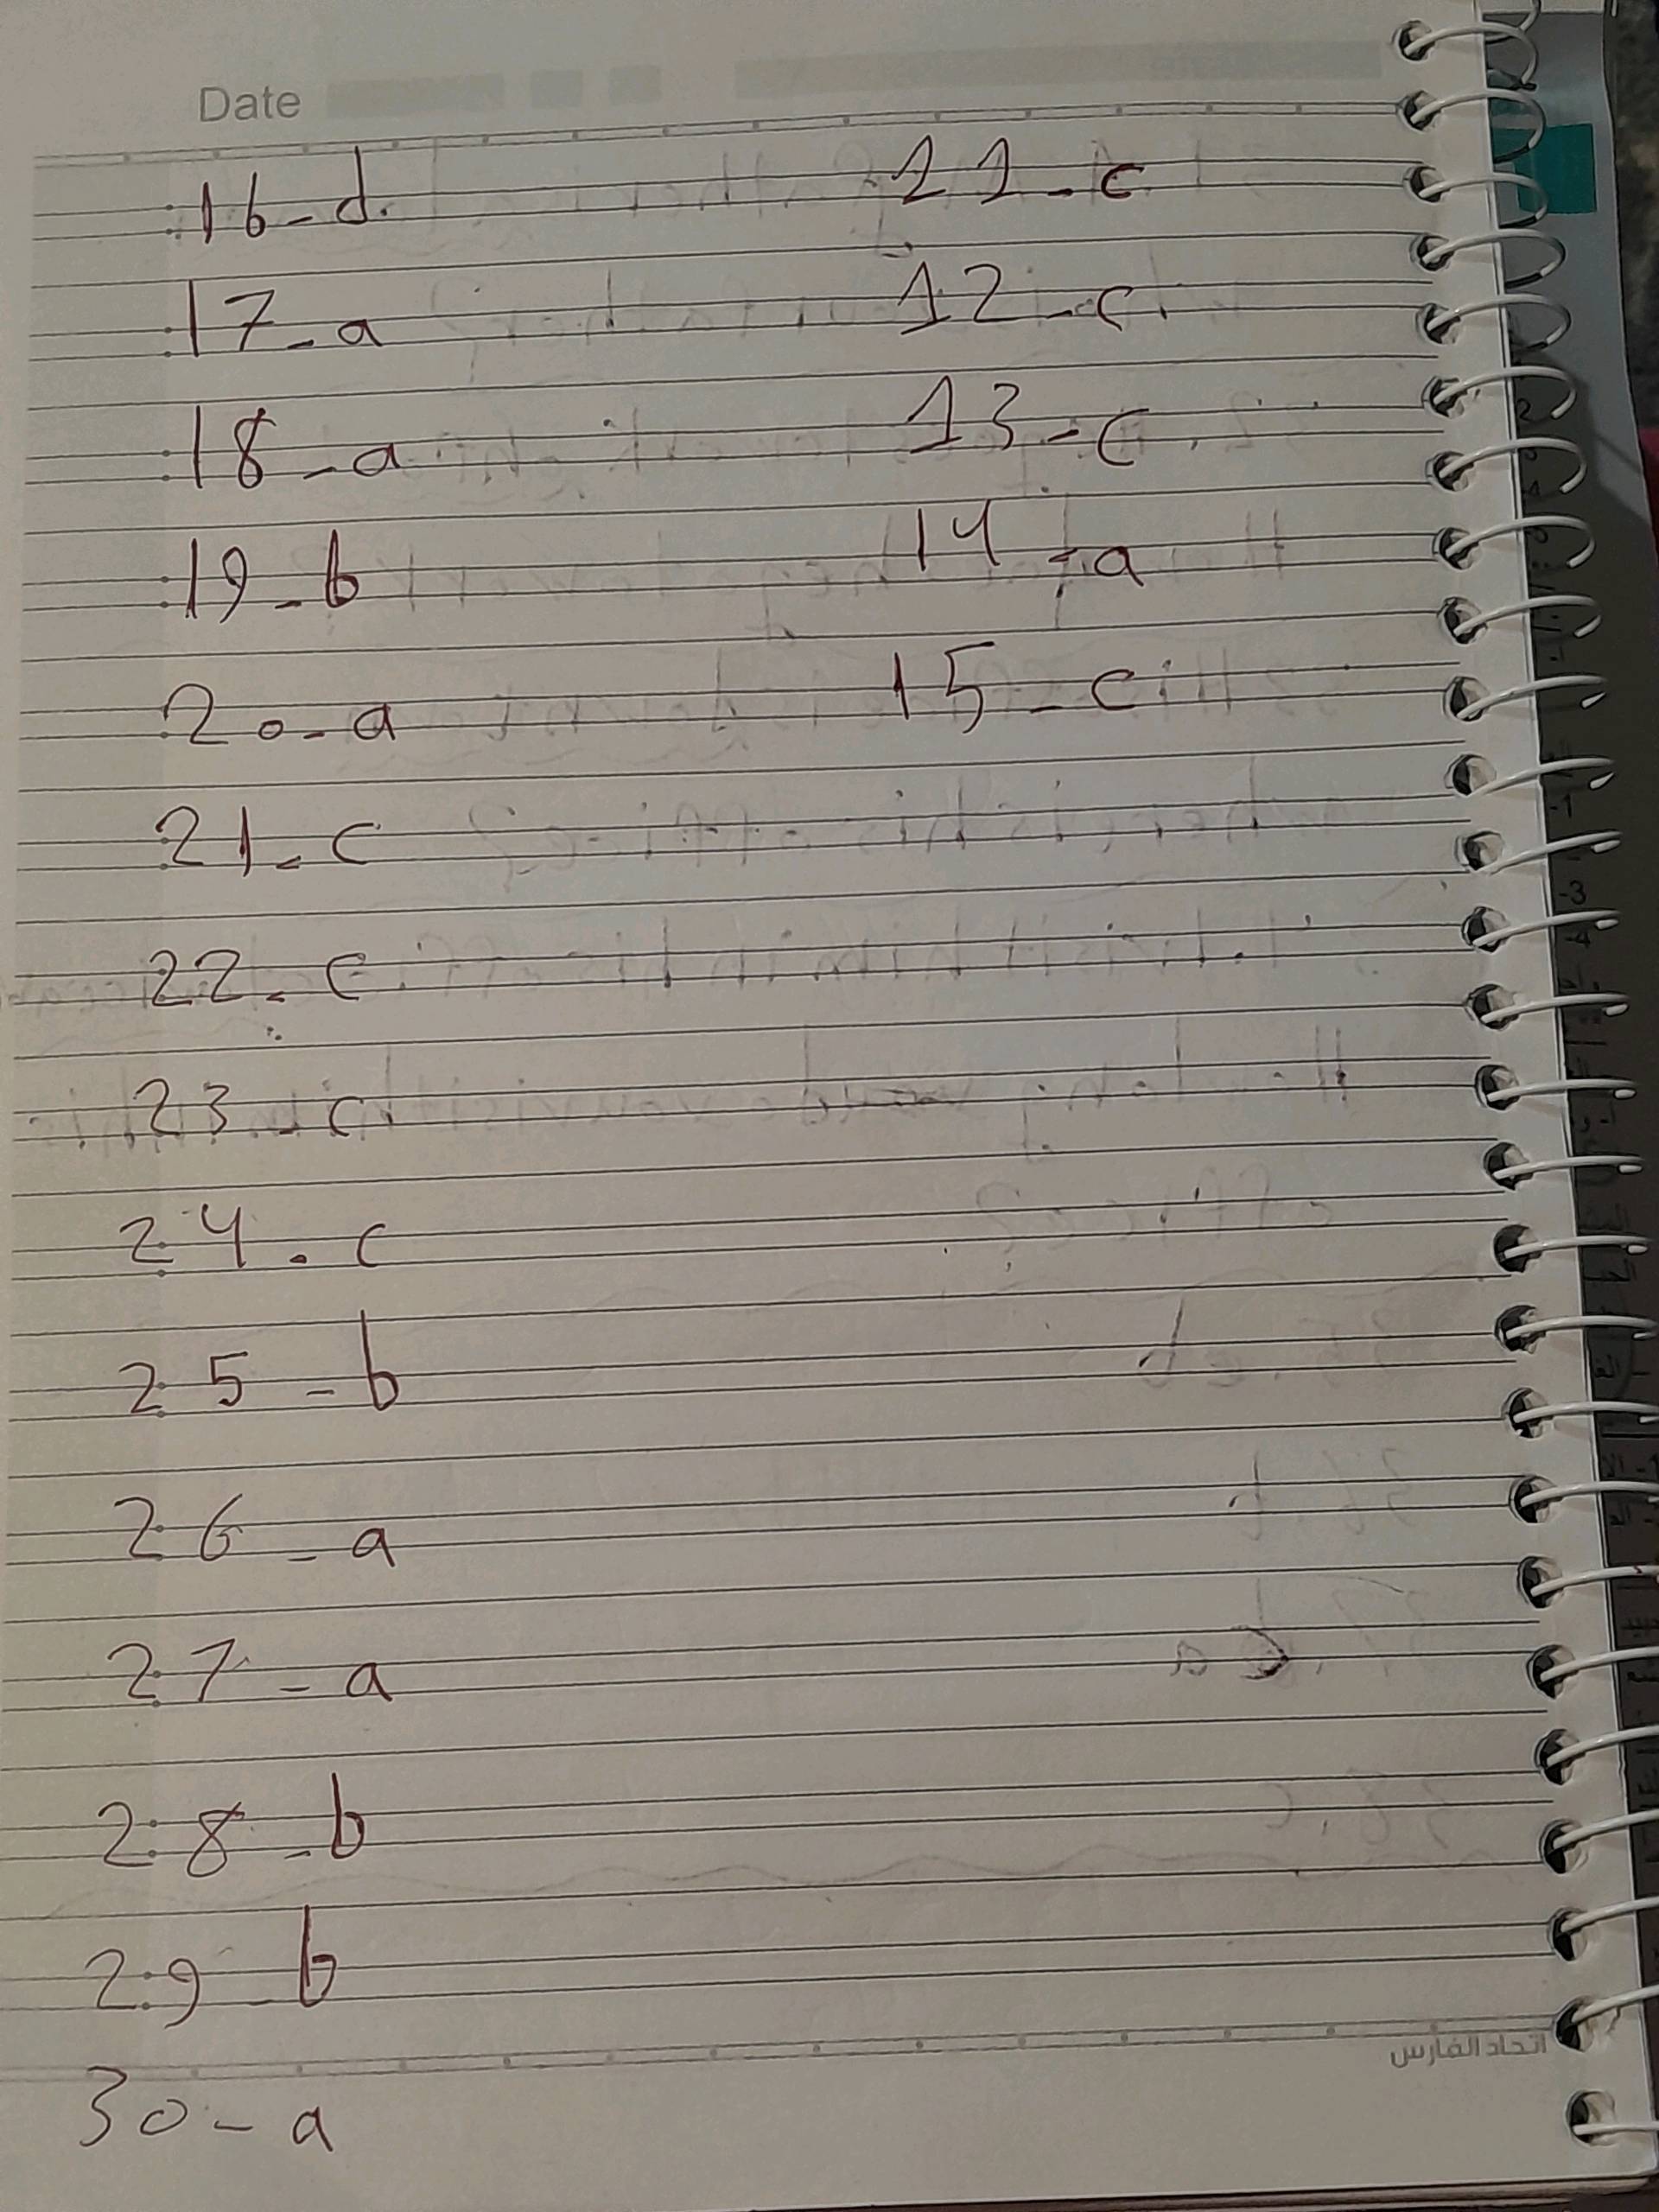 Date
16-d.
11-c
17-a
12-c
18-a
13-c
19-b
14-a
20-a
15-c
21-c
22-c
23-c
24-c
25-b
26-a
27-a
28-b
29-b
اتحاد الفارس
30-a